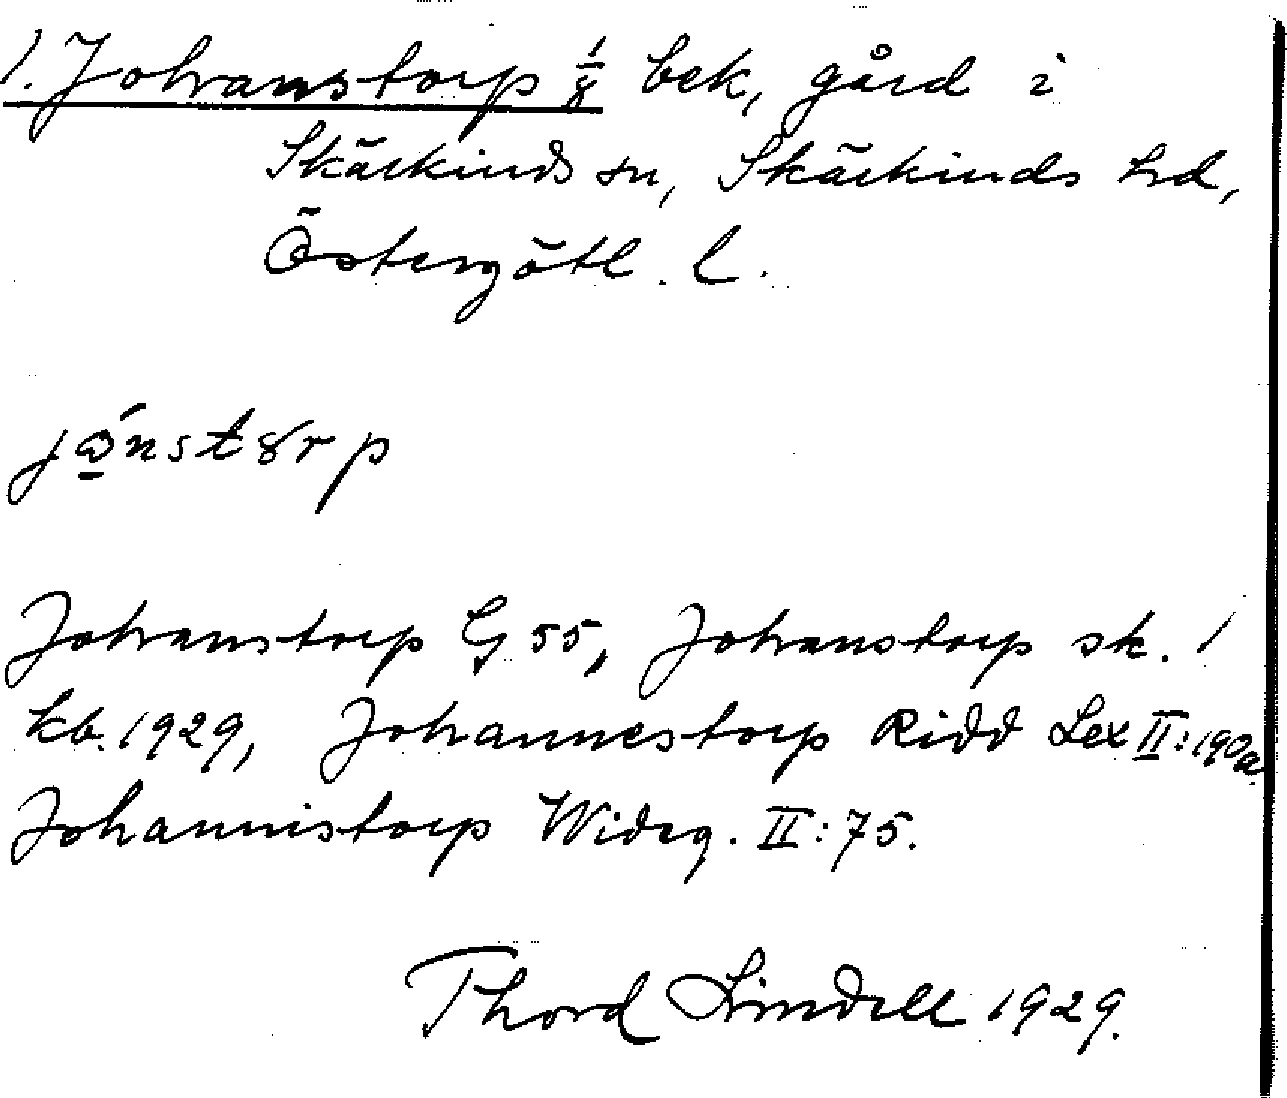 1. Johanstorp 1/8 bek, gård i
Skärkinds sn, Skärkinds hd,
Östergötl. l.
Johanstorp G 55, Johanstorp sk. 1
kb. 1929, Johannestorp Ridd Lex II:190a
Johannistorp Wideg. II:75.
Thord Lindell 1929.